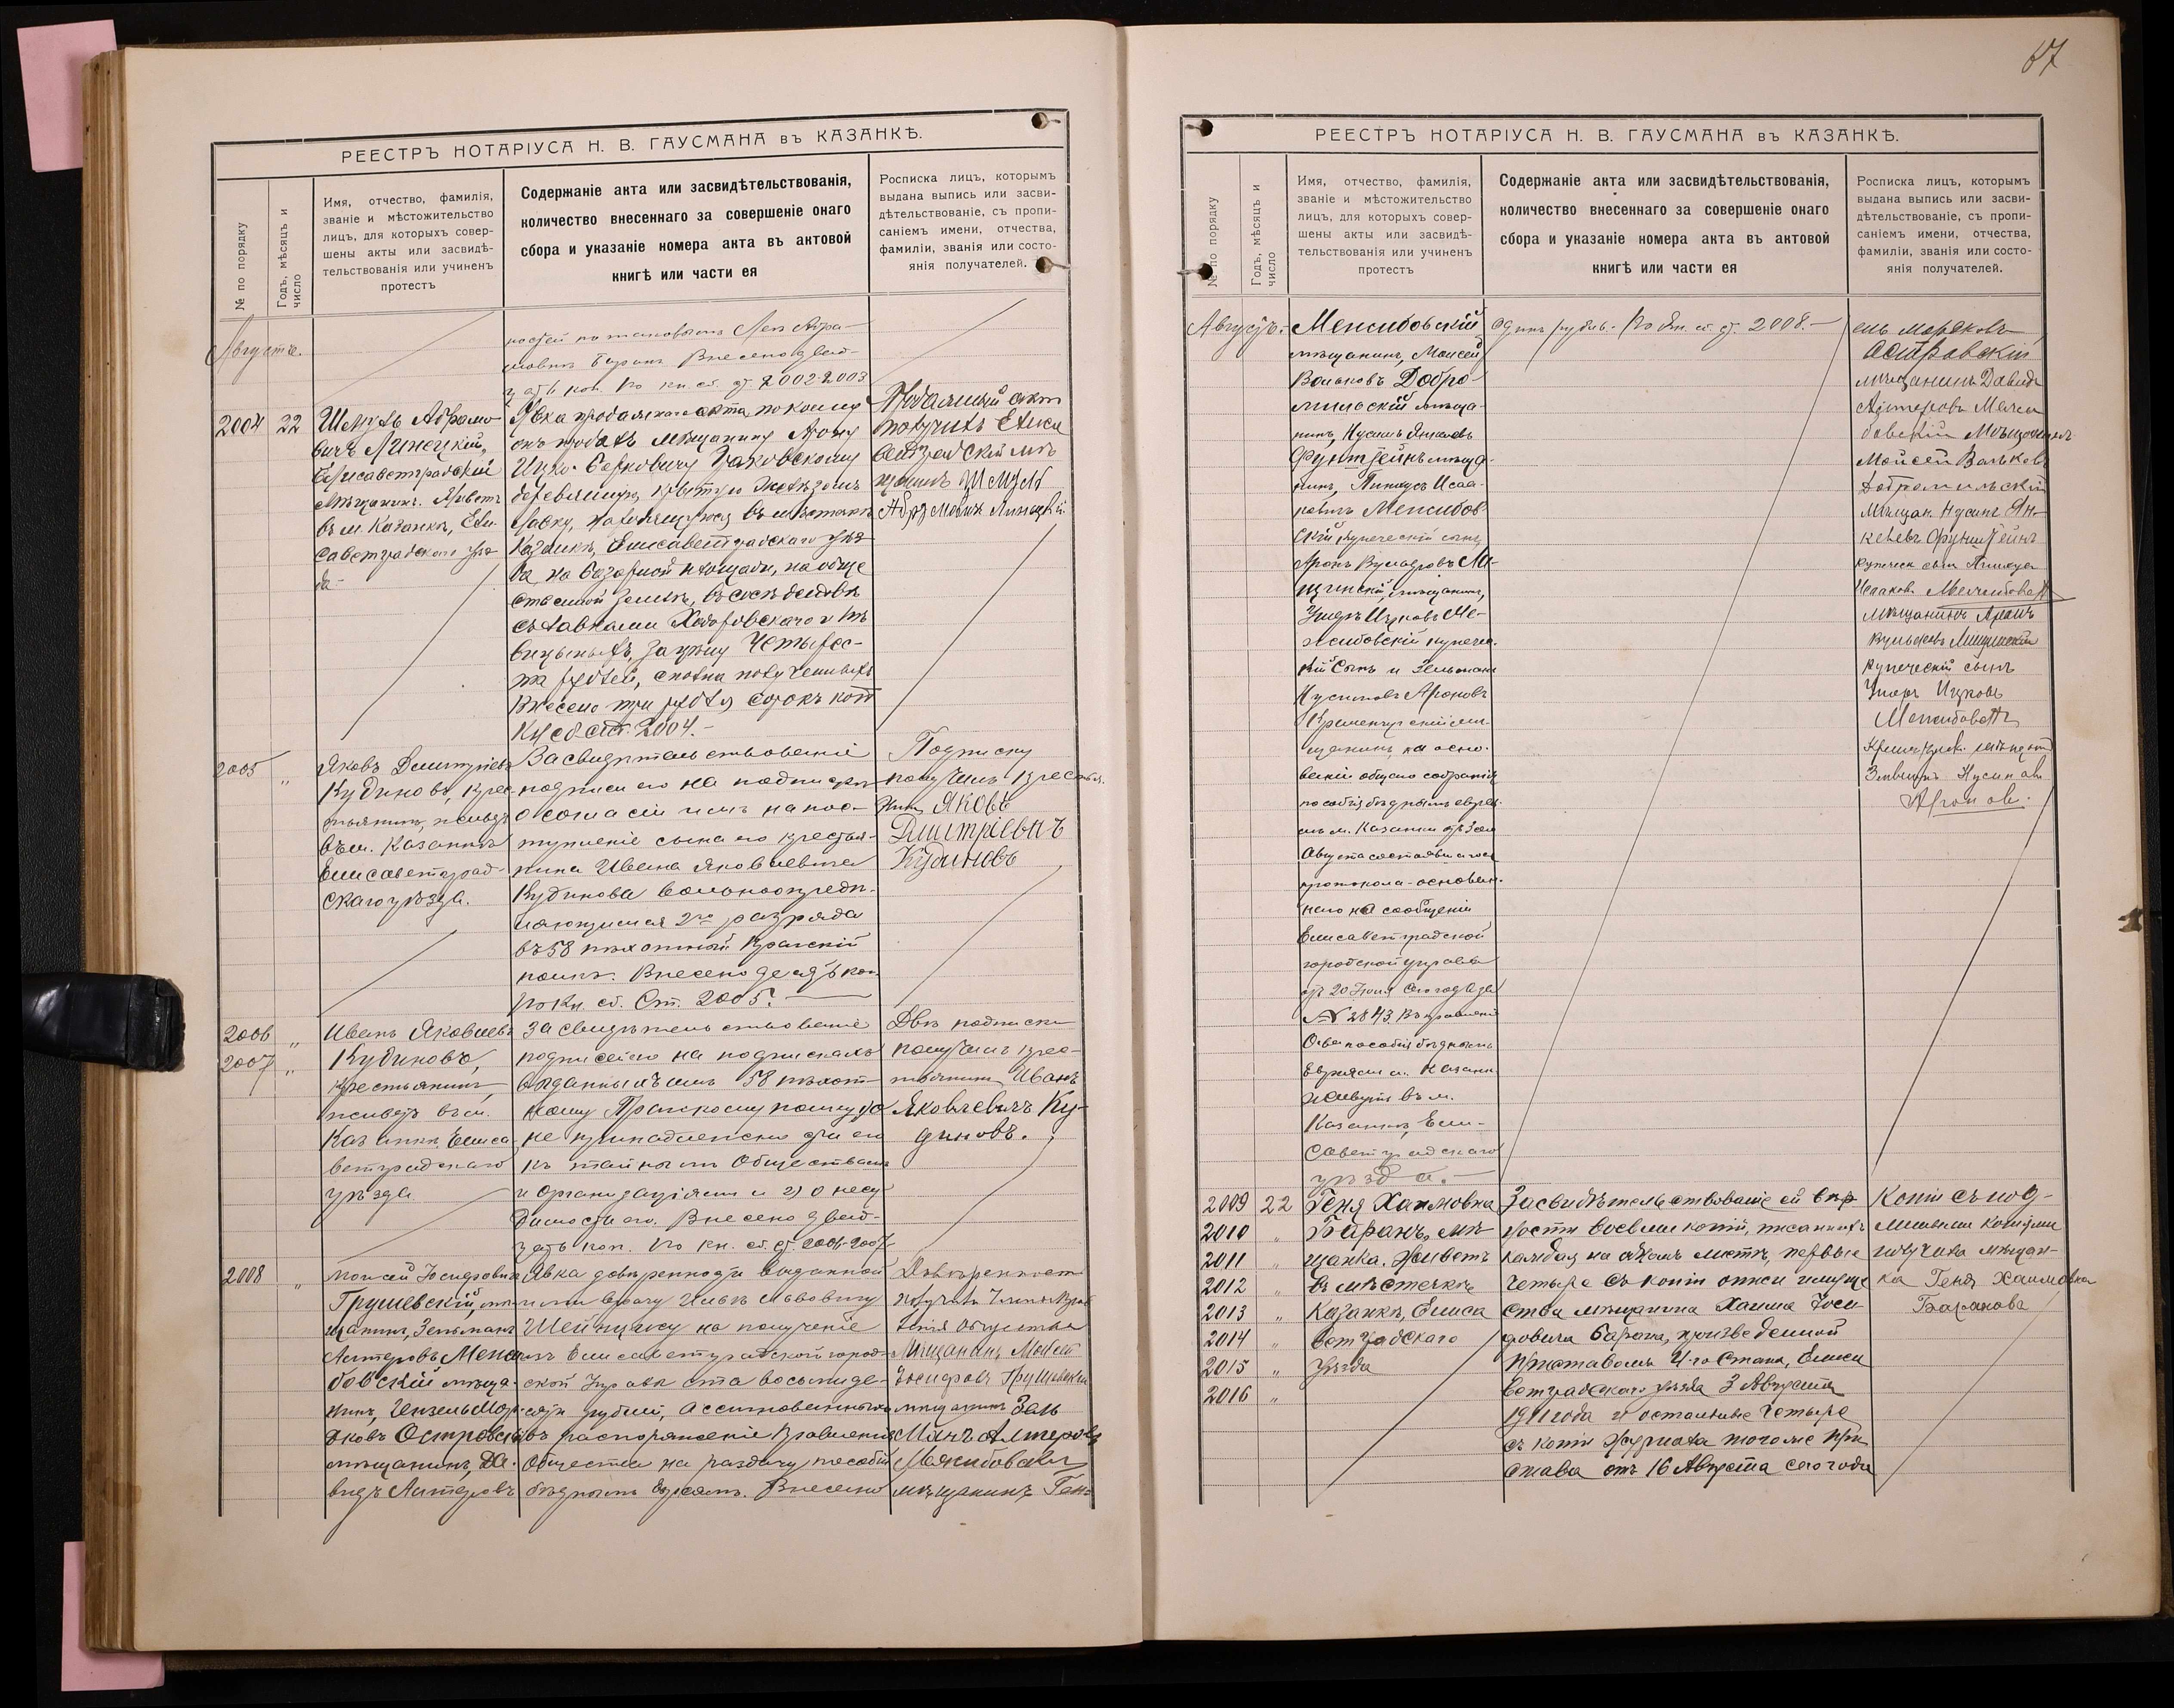 67
РЕЕСТРЪ НОТАРІУСА Н. В. ГАУСМАНА въ КАЗАНКѢ.
№ по порядку
Годъ, мѣсяцъ и
число
Имя, отчество, фамилія,
званіе и мѣстожительство
лицъ, для которыхъ совер-
шены акты или засвидѣ-
тельствованія или учиненъ
протестъ
Содержаніе акта или засвидѣтельствованія,
количество внесеннаго за совершеніе онаго
сбора и указаніе номера акта въ актовой
книгѣ или части ея
Росписка лицъ, которымъ
выдана выпись или засви-
дѣтельствованіе, съ пропи-
саніемъ имени, отчества,
фамиліи, званія или состо-
янія получателей.
Августъ.
Баранъ Внесено двад-
кн. сб. ст. 2002 2003
2004 22
Шмуль Абрамо-
вичъ Линецкій,
Елисаветградскій
мѣщанинъ. Живетъ
въ м. Казанкѣ, Ели-
саветградскаго уѣз-
да-
Явка продажнаго акта по коему
онъ продалъ мѣщанину
Ицко-Берковичу
деревянную, крытую желѣзомъ
лавку, находящуюся въ мѣстечкѣ
Казанкѣ, Елисаветградскаго уѣз-
да, на базарной площади, на обще
ственной землѣ, въ сосѣдствѣ
съ лавками
за цѣну четырес-
та рублей, сполна полученныхъ
Внесено три рубля сорокъ коп
Кн сб. ст. 2004.-
Продажный актъ
получилъ Елиса
ветградскій мѣ
щанинъ Шмуль
Абрамовичъ Линецкій
2005 "
Яковъ Дмитріевъ
Кудиновъ, крес-
тьянинъ, живетъ
въ м. Казанкѣ
Елисаветград-
скаго уѣзда.
Засвидѣтельствованіе
подписи его на подпискѣ
о согласіи имъ на пос-
тупленіе сына его крестья-
нина Ивана Яковлевича
Кудинова вольноопредѣ-
ляющимся 2го разряда
въ 58 пѣхотный Пражскій
полкъ. Внесено десять коп.
По Кн. сб. Ст. 2005.
Подписку
получилъ крестья-
нинъ Яковъ
Дмитріевичъ
Кудиновъ
2006 "
2007 "
Иванъ Яковлевъ
Кудиновъ,
крестьянинъ,
живетъ въ м.
Казанкѣ Елиса
ветградскаго
уѣзда
Засвидѣтельствованіе
подписей его на подпискахъ
выданныхъ имъ 58 пѣхот-
ному Пражскому полку 1) о
не принадлежности его
къ тайнымъ Обществамъ
и Организаціямъ и 2) о несу
димости его. Внесено двад-
цать коп. По кн. сб. ст. 2006-2007
Двѣ подписки
получилъ крес-
тьянинъ Иванъ
Яковлевичъ Ку-
диновъ.
2008 "
Моисей Іосифовичъ
Грушевскій, мѣ-
щанинъ, Зельманъ
Алтеровъ Межи
бовскій мѣща-
нинъ,
Островскій
мѣщанинъ, Да-
видъ Алтеровъ
Явка довѣренности выданной
ими врачу Ильѣ Львовичу
на полученіе
изъ Елисаветградской город-
ской Управы ста восьмиде-
сяти рублей, ассигнованныхъ
въ распоряженіе Правленія
Общества на раздачу пособій
бѣднымъ евреямъ. Внесено
Довѣренность
получили Члены Прав
ленія Общества
Мѣщанинъ Мойсей
Іосифовъ Грушевскій
мѣщанинъ Зель
манъ Алтеровъ
Межибовскій
мѣщанинъ
РЕЕСТРЪ НОТАРІУСА Н. В. ГАУСМАНА въ КАЗАНКѢ.
№ по порядку
Годъ, мѣсяцъ и
число
Имя, отчество, фамилія,
званіе и мѣстожительство
лицъ, для которыхъ совер-
шены акты или засвидѣ-
тельствованія или учиненъ
протестъ
Содержаніе акта или засвидѣтельствованія,
количество внесеннаго за совершеніе онаго
сбора и указаніе номера акта въ актовой
книгѣ или части ея
Росписка лицъ, которымъ
выдана выпись или засви-
дѣтельствованіе, съ пропи-
саніемъ имени, отчества,
фамиліи, званія или состо-
янія получателей.
Августъ.-
Межибовскій
мѣщанинъ, Моисей
Вольковъ Добро-
мильскій мѣща-
нинъ, Нусинъ Янкелевъ
мѣща-
нинъ, Пинкусъ Исаа-
ковъ Межибов-
скій купеческій сынъ,
Аронъ
мѣщанинъ,
Ицковъ Ме-
жибовскій купече-
скій сынъ и Зельманъ
Нусиновъ Ароновъ
Кременчугскій мѣ-
щанинъ, на осно-
ваніи общаго собранія
пособія бѣднымъ евре-
ямъ м. Казанки
Августа состоявшагося
протокола-основан-
наго на сообщеніи
Елисаветградской
городской управы
отъ 20 Іюля сего года за
№ 2843
пособія бѣднымъ
Евреямъ м. Казанки
живутъ въ м.
Казанкѣ, Ели-
саветградскаго
уѣзда.-
одинъ рубль. По кн. сб. ст. 2008.-
Островскій
мѣщанинъ Давидъ
Алтеровъ Межи
бовскій Мѣщанинъ
Мойсей Вальковъ
Добромильскій
Мѣщан. Нусинъ Ян-
келевъ
купеческ сынъ Пинкусъ
Исааков. Межибовскій
Мѣщанинъ Аронъ
купеческій сынъ
Ицковъ
Межибовскій
Зельманъ Нусиновъ
Ароновъ.
2009 22
2010 "
2011 "
2012 "
2013 "
2014 "
2015 "
2016 "
Геня Хаимовна
Баранъ, мѣ-
щанка. Живетъ
въ мѣстечкѣ
Казанкѣ, Елиса
ветградскаго
уѣзда
Засвидѣтельствованіе ей вѣр
ности восьми копій, писанныхъ
каждая на одномъ листѣ, первые
четыре съ копіи описи имуще
ства мѣщанина Хаима Іоси-
фовича Барана, произведенной
Приставомъ 4-го Стана, Елиса
ветградскаго уѣзда 3 Августа
1911 года и остальные четыре
съ копіи журнала того же При
става отъ 16 Августа сего года
Копіи съ под-
линными копіями
получила мѣщан-
ка Геня Хаимовна
Баранова